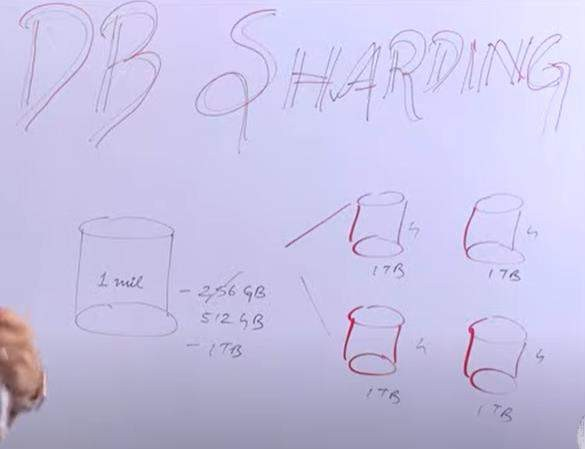 DB SHARDING
1 mil
- 256 GB
512 GB
- 1TB
1TB
1TB
1TB
1TB